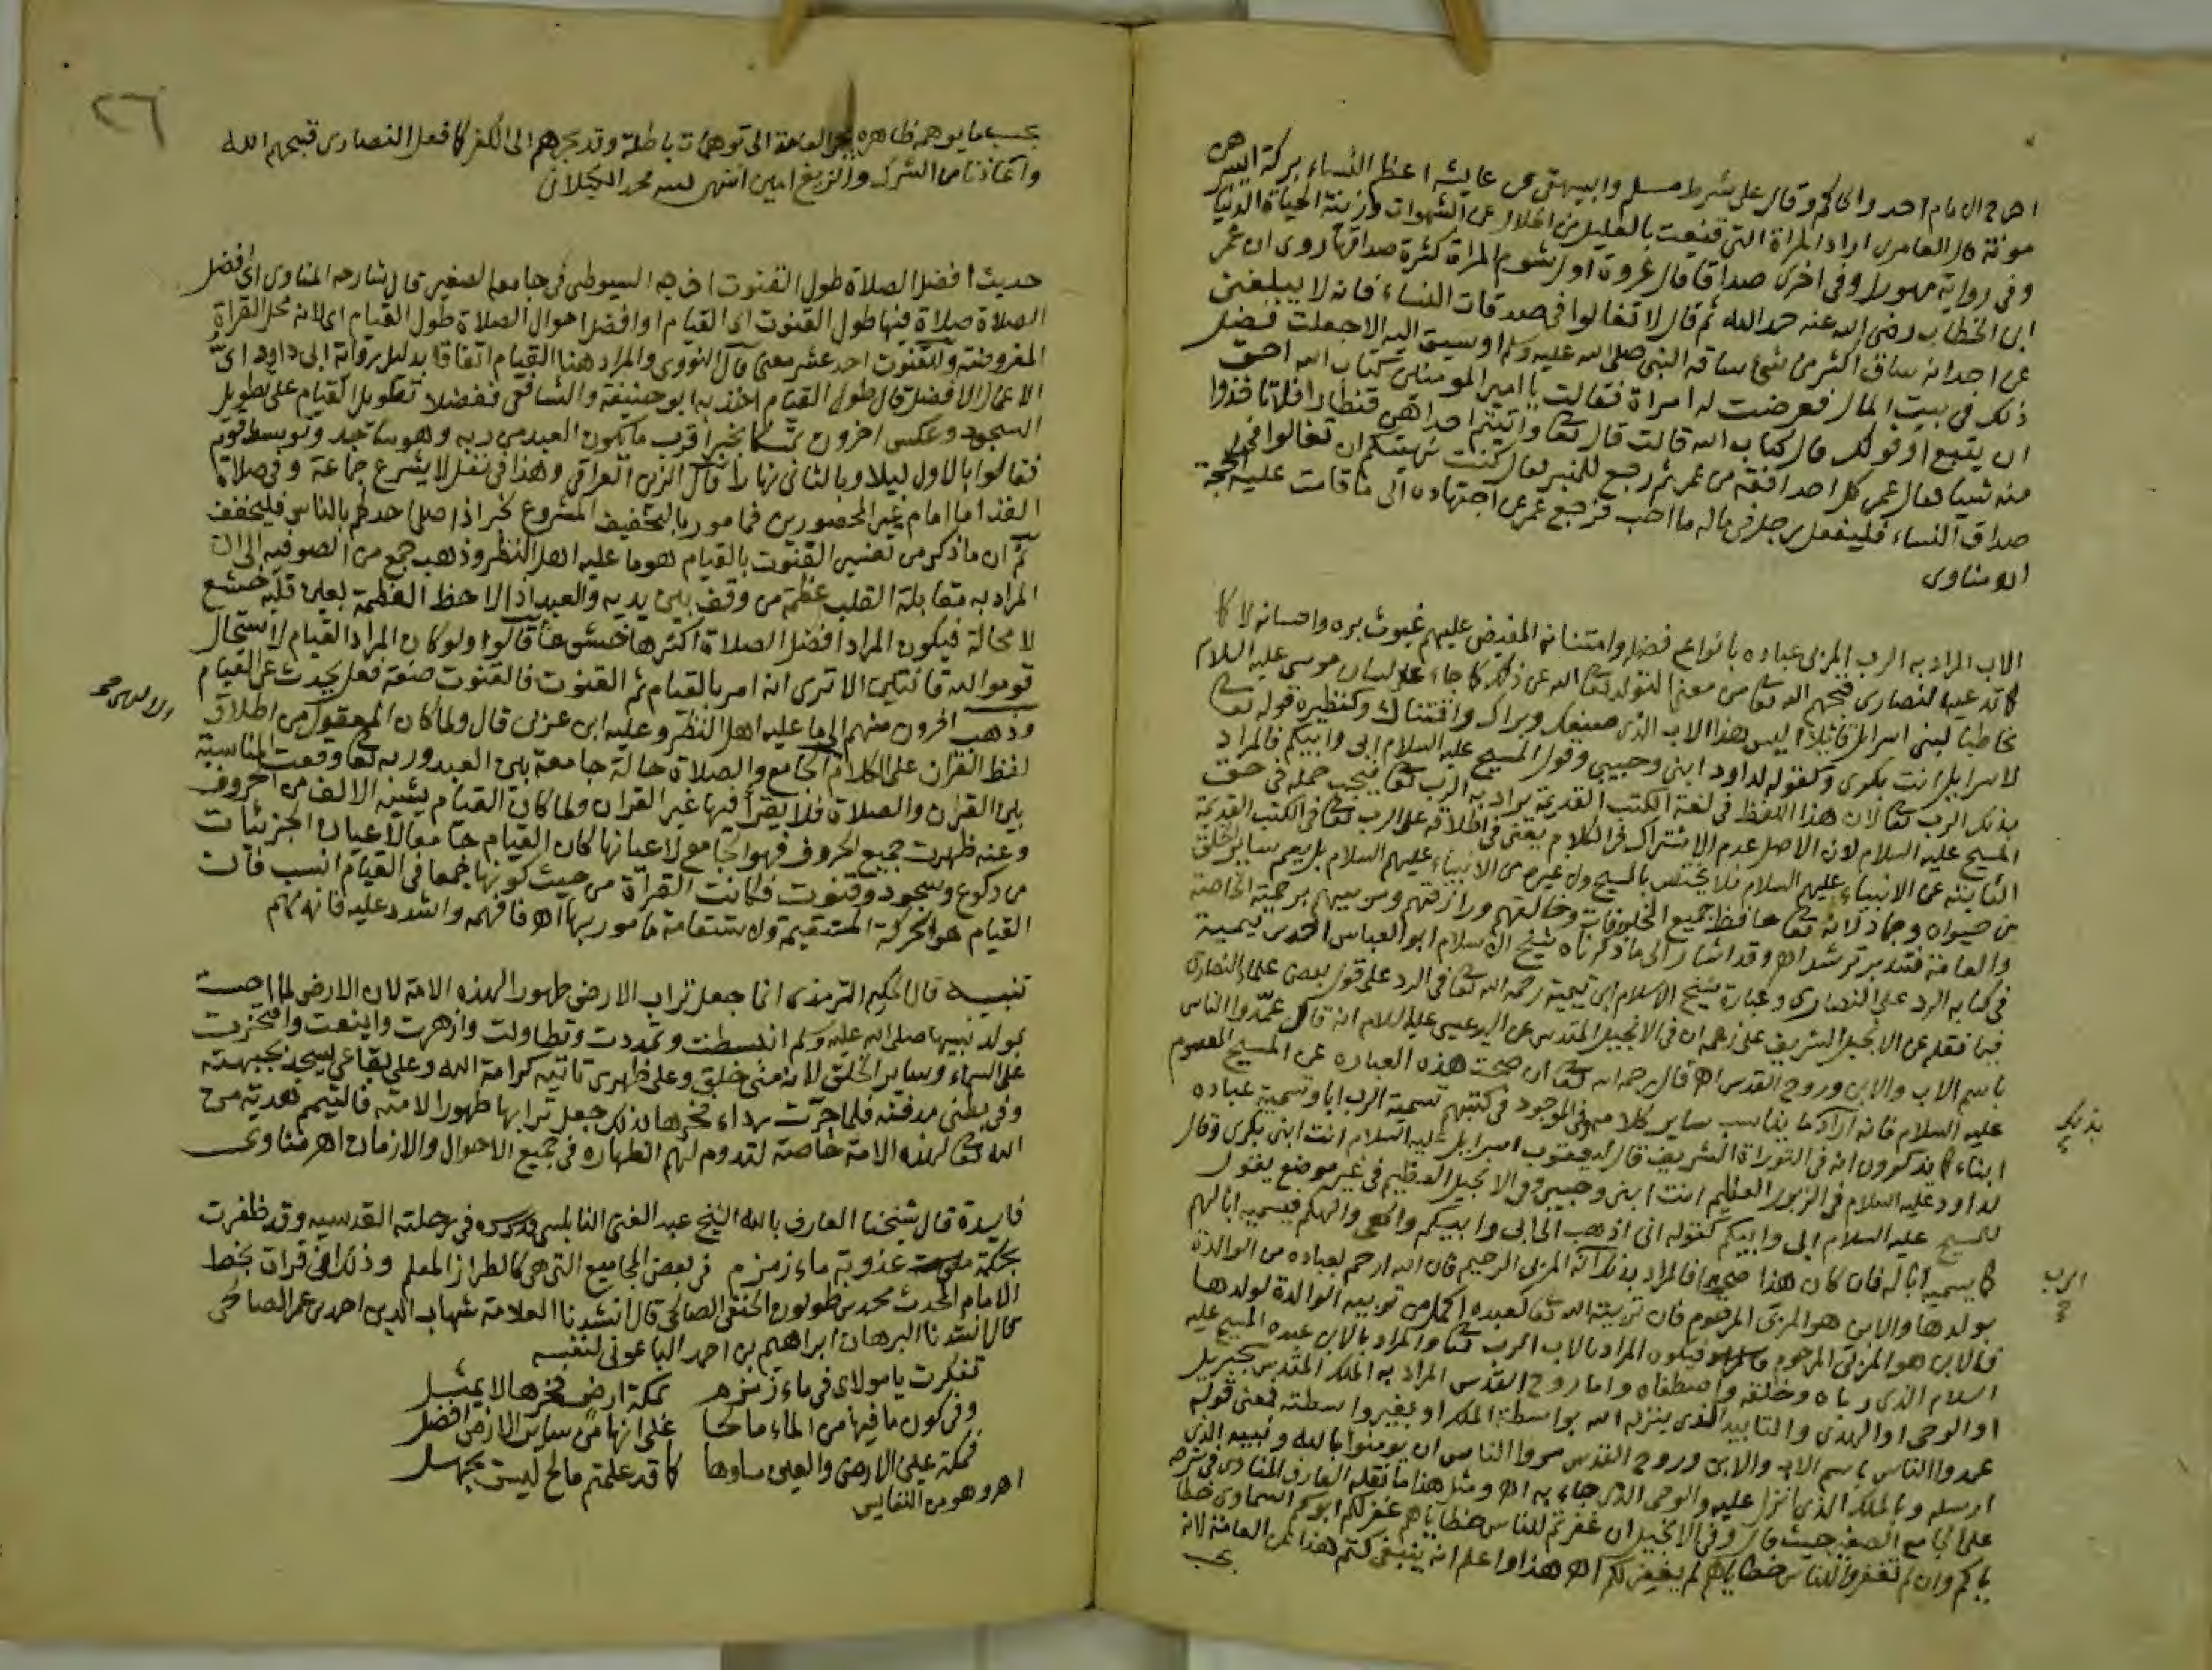 اخرج الامام احمد والحاكم وقال على شرط مسلم والبيهقي عن عايشة اعظم النساء بركة ايسرهن
مونة قال العامري اراد المراة التي قنعت بالقليل من الحلال عن الشهوات وزينة الحياة الدنيا
وفي رواية مهورا وفي اخرى صداقا قال عروة اول شوم المراة كثرة صداقها روى ان عمر
ابن الخطاب رضي الله عنه حمد الله ثم قال لا تغالوا في صدقات النساء فانه لا يبلغني
عن احد انه ساق اكثر من شئ ساقه النبي صلى الله عليه وسلم او سيق اليه الا جعلت فضل
ذلك في بيت المال فعرضت له امراة فقالت يا امير المومنين كتاب الله احق
ان يتبع او قولك قال كتاب الله قالت قال تعا وآتيتم احداهن قنطارا فلا تاخذوا
منه شيا فقال عمر كل احد افقه من عمر ثم رجع للمنبر فقال كنت نهيتكم ان تغالوا في
صداق النساء فليفعل رجل في ماله ما احب فرجع عمر عن اجتهاده الى ما قامت عليه الحجة
اه مناوى
الاب المراد به الرب المربي عباده بانواع فضله وامتنانه المفيض عليهم غيوث بره واحسانه لا كا
كما تدعيه النصارى قبحهم الله تعا من معنى التولد تعا الله عن ذلك كما جاء على لسان موسى عليه السلام
مخاطبا لبني اسرايل قائلا اليس هذا الاب الذي صنعك وبراك واقتناك وكنظيره قوله تعا
لاسرايل انت بكرى وكقوله لداود ابني وحبيبي وقول المسيح عليه السلام ابي وابيكم فالمراد
بذلك الرب تعا لان هذا اللفظ في لغة الكتب القديمة يراد به الرب تعا فيجب حمله في حق
المسيح عليه السلام لان الاصل عدم الاشتراك في الكلام يعني في اطلاقه على الرب تعا في الكتب القديمة
الثابتة عن الانبياء عليهم السلام فلا يختص بالمسيح ولا غيره من الانبياء عليهم السلام بل يعم ساير الخلق
من حيوان وجماد لانه تعا حافظ جميع المخلوقات وخالقهم ورازقهم ومربيهم برحمته الخاصة
والعامة فتدبر ترشد اه وقد اشار الى ما ذكرناه شيخ الاسلام ابو العباس احمد بن تيمية
في كتابه الرد على النصارى وعبارة شيخ الاسلام ابن تيمية رحمه الله تعا في الرد على قول بعض علماء النصارى
فيما نقله عن الانجيل الشريف على زعمه ان في الانجيل المقدس عن السيد عيسى عليه السلام انه قال عمّدوا الناس
باسم الاب والابن وروح القدس اه قال رحمه الله تعا ان صحت هذه العبارة عن المسيح المعصوم
عليه السلام فانه اراد ما يناسب ساير كلامه وفي الموجود في كتبهم تسمية الرب ابا وتسمية عباده
بذلك
ابناء كما يذكرون انه في التوراة الشريفة قال ليعقوب اسرايل عليه السلام انت ابني بكرى وقال
لداود عليه السلام في الزبور العظيم انت ابني وحبيبي وفي الانجيل العظيم في غير موضع يقول
المسيح عليه السلام ابي وابيكم كقوله اني اذهب الى ابي وابيكم والهي والهكم فيسميه ابا لهم
كما يسميه ابا له فان كان هذا صحيحا فالمراد بذلك انه المربي الرحيم فان الله ارحم بعباده من الوالدة
الرب
بولدها والابن هو المربى المرحوم فان تربية الله تعا لعبده اكمل من تربية الوالدة لولدها
فالابن هو المربى المرحوم فيكون المراد بالاب الرب تعا والمراد بالابن عبده المسيح عليه
السلام الذي رباه وخلقه واصطفاه واما روح القدس المراد به الملك المقدس جبريل
او الوحي او الهدى والتاييد الذي ينزله الله بواسطة الملك او بغير واسطته فمعنى قوله
عمدوا الناس باسم الاب والابن وروح القدس مروا الناس ان يومنوا بالله ونبيه الذي
ارسله وبالملك الذي انزل عليه والوحي الذي جاء به اه ومثل هذا ما نقله العارف المناوى في شرحه
على الجامع الصغير حيث قال وفي الانجيل ان غفرتم للناس خطاياهم غفر لكم ابوكم السماوى خطا
ياكم وان لم تغفروا للناس خطاياهم لم يغفر لكم اه هذا واعلم انه ينبغي كتم هذا عن العامة لانه
٢٦
بحسب ما يوهم ظاهره يجر العامة الى توهمات باطلة وقد يجرهم الى الكفر كما فعل النصارى قبحهم الله
واعاذنا من الشرك والزيغ امين انتهى لسه محمد الكيلاني
حديث افضل الصلاة طول القنوت اخرجه السيوطي في جامعه الصغير قال شارحه المناوى اي افضل
الصلاة صلاة فيها طول القنوت اى القيام او افضل احوال الصلاة طول القيام اى لانه محل القراة
المفروضة وللقنوت احد عشر معنى قال النووى والمراد هنا القيام اتفاقا بدليل رواية ابي داود اىّ
الاعمال افضل قال طول القيام اخذ به ابو حنيفة والشافعي ففضلا تطويل القيام على تطويل
السجود وعكس اخرون تمسكا بخبر اقرب ما يكون العبد من ربه وهو ساجد وتوسط قوم
فقالوا بالاول ليلا وبالثاني نهارا قال الزين العراقي وهذا في نفل لا يشرع جماعة وفي صلاة
الفذ اما امام غير المحصورين فمامور بالتخفيف المشروع لخبر اذا صلى احدكم بالناس فليخفف
ثم ان ما ذكر من تفسير القنوت بالقيام هو ما عليه اهل النظر وذهب جمع من الصوفية الى ان
المراد به مقابلة القلب عظمة من وقف بين يديه والعبد اذا لاحظ العظمة بعين قلبه خشع
لا محالة فيكون المراد افضل الصلاة اكثرها خشوعا قالوا ولو كان المراد القيام لاستحال
قوموا لله قانتين الا ترى انه امر بالقيام ثم القنوت فالقنوت صفة فعل يحدث عن القيام
وذهب اخرون منهم الى ما عليه اهل النظر وعليه ابن عربي قال ولما كان المعقول من اطلاق
لفظ القران على الكلام الجامع والصلاة حالة جامعة بين العبد وربه تعا وقعت المناسبة
بين القران والصلاة فلا يقرأ فيها غير القران ولما كان القيام يشبه الالف من الحروف
وعنه ظهرت جميع الحروف فهو الجامع لاعيانها كان القيام جامعا لاعيان الجزئيات
من ركوع وسجود وقنوت فكانت القراة من حيث كونها جمعا في القيام انسب فان
القيام هو الحركة المستقيمة والاستقامة مامور بها اه فافهمه واشدد عليه فانه مهم
تنبيه قال الحكيم الترمذى انما جعل تراب الارض طهورا لهذه الامة لان الارض لما احست
بمولد نبيها صلى الله عليه وسلم انبسطت وتمددت وتطاولت وازهرت واينعت وافتخرت
على السماء وساير الخلق لانه مني خلق وعلى ظهرى تاتيه كرامة الله وعلى بقاعي يسجد بجبهته
وفي بطني مدفنه فلما جرّت رداء فخرها لذلك جعل ترابها طهورا لامته فالتيمم هدية من
الله تعا لهذه الامة خاصة لتدوم لهم الطهارة في جميع الاحوال والازمان اهر مناوى
فايدة قال شيخنا العارف بالله الشيخ عبد الغني النابلسي قدس سره في رحلته القدسيه وقد ظفرت
بحكمة عذوبة ماء زمزم في بعض المجاميع التي هي كالطراز المعلم وذلك اني قرات بخط
الامام المحدث محمد بن طولون الحنفي الصالحي قال انشدنا العلامة شهاب الدين احمد بن عمر الصالحي
قال انشدنا البرهان ابراهيم بن احمد الباعوني لنفسه
تفكرت يا مولاى في ماء زمزم بمكة ارض فخرها لا يمثل
وفي كون ما فيها من الماء مالحا على انها من ساير الارض افضل
فمكة عين الارض والعين ماوها كما قد علمتم مالح ليس يجهل
اهر وهو من النفايس